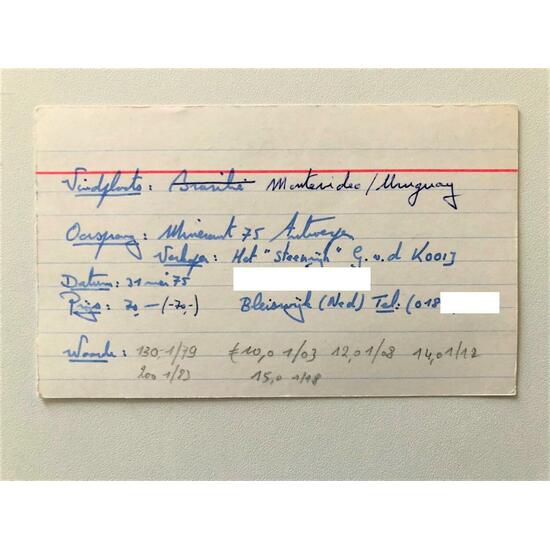 Vindplaats: Brasilië Montevideo/Uruguay
Oorsprong: Minerant 75 Antwerpen
Verkoper: Het "Steenrijk" G. v. d Kooij
Datum: 31 mei 75
Prijs: 70,- (-70,-) Bleiswijk (Ned) Tel: (018
Waarde: 130 1/79 €10,0 1/03 12,0 1/08 14,0 1/12
200 1/83 15,0 1/18